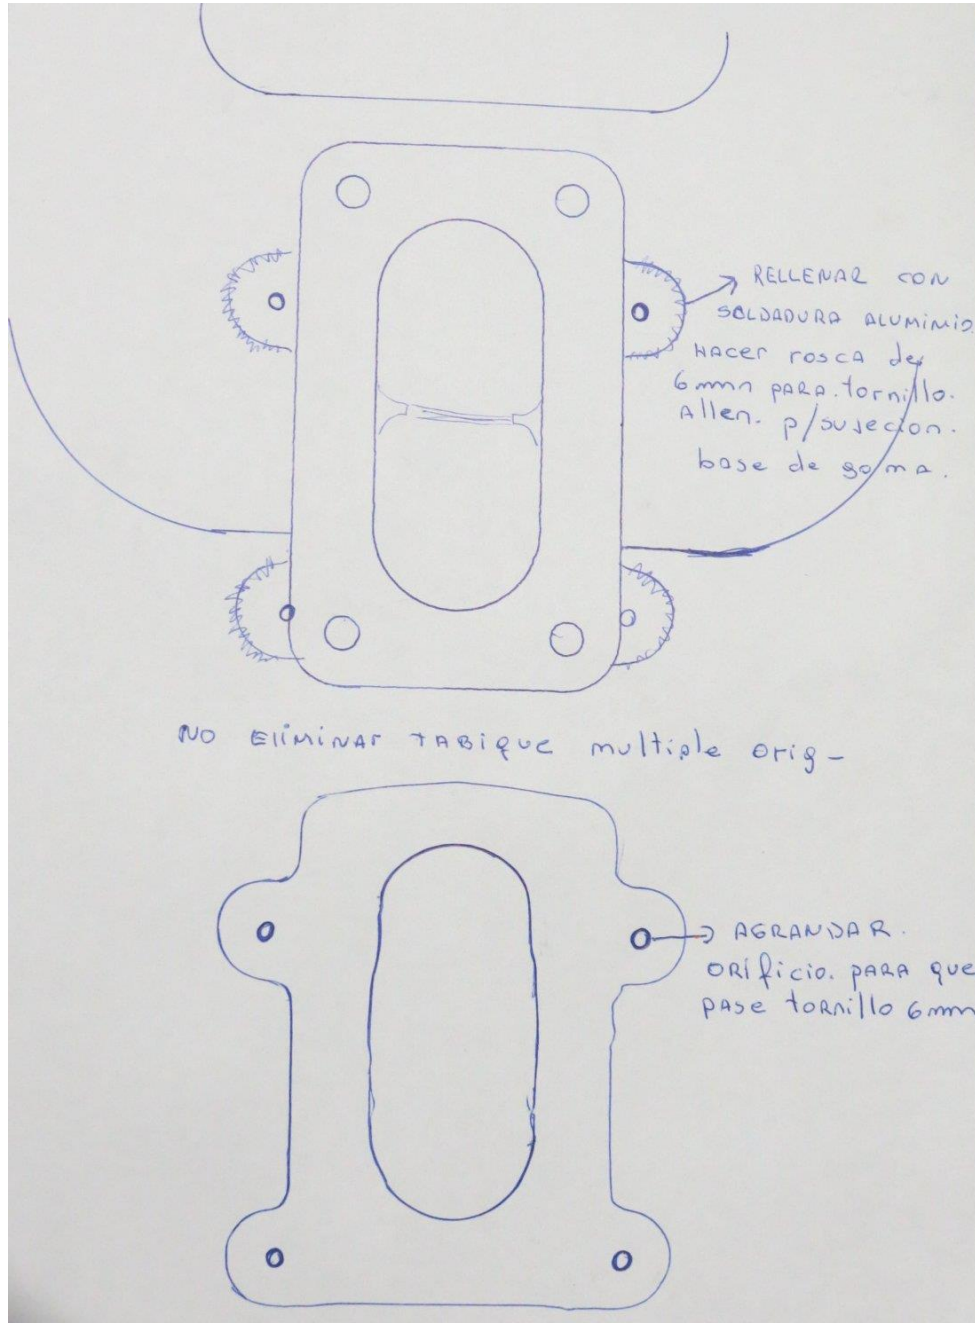 RELLENAR CON
SOLDADURA ALUMINIO.
HACER ROSCA de
6mm PARA.tornillo.
Allen. p/sujecion.
base de goma.
NO EliMINAr TABique multiple orig-
AGRANDAR.
ORificio. PARA que
PASe toRnillo 6mm